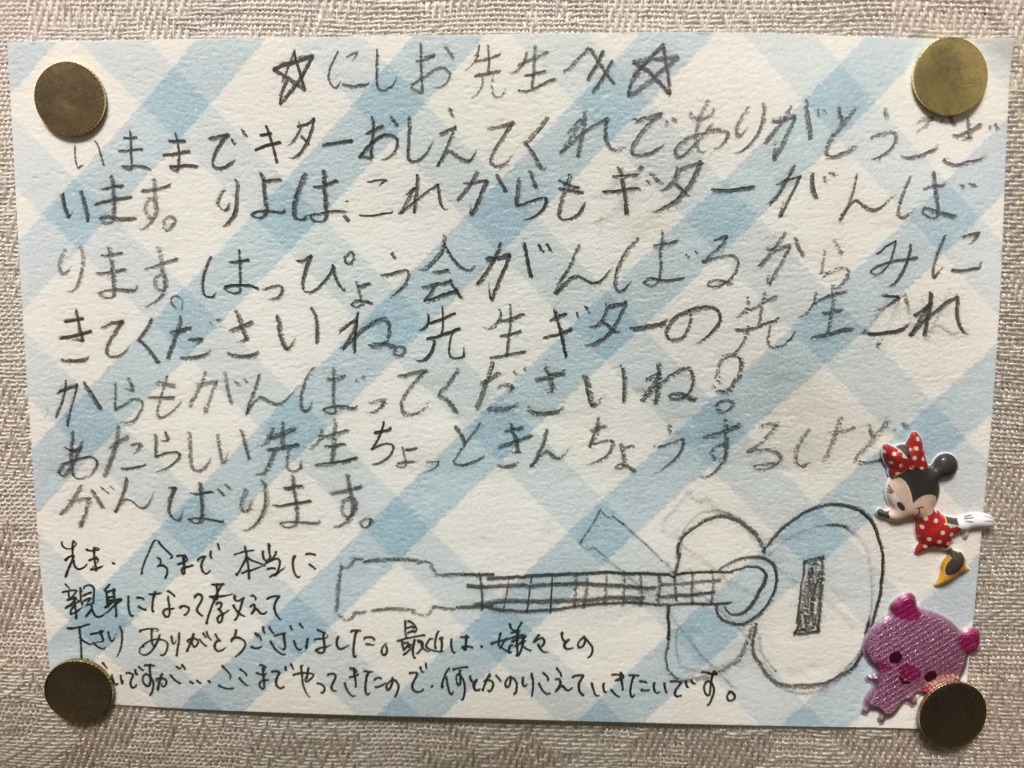 ☆にしお先生へ☆
いままでギターおしえてくれてありがとうござ
います。りよは、これからもギターがんば
ります。はっぴょう会がんばるからみに
きてくださいね。先生ギターの先生これ
からもがんばってくださいね!
あたらしい先生ちょっときんちょうするけど
がんばります。
先生、今まで本当に
親身になって教えて
下さり ありがとうございました。最近は、嫌々との
いですが…ここまでやってきたので、何とかのりこえていきたいです。